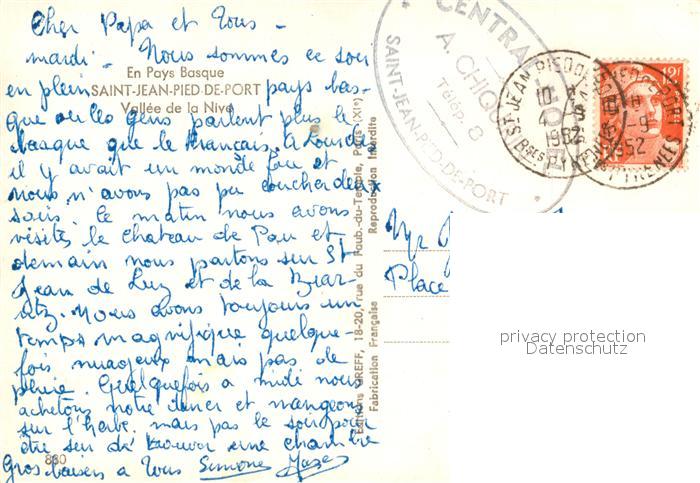 Cher Papa et Tous -
mardi - Nous sommes ce soir
en plein pays bas-
que ou les gens parlent plus le
basque que le français. A Lourdes
il y avait un monde fou et
nous n'avons pas pu coucher deux
soirs. Ce matin nous avons
visités le chateau de Pau et
demain nous partons sur St
Jean de Luz et de la Biar-
itz. Nous avons toujours un
temps magnifique quelque-
fois nuageux mais pas de
pluie. Quelquefois a midi nous
achetons notre diner et mangeons
sur l'herbe mais pas le soir pour
être sur de trouver une chambre
Gros baisers a Tous Simone
En Pays Basque
SAINT-JEAN-PIED-DE-PORT
Vallée de la Nive
880
Editions GREFF, 18-20, rue du Faub.-du-Temple, Paris (XIe)
Fabrication Française Reproduction Interdite
CENTRAL
A. CHIQU
Téléph. 8
SAINT-JEAN-PIED-DE-PORT
ST JEAN PIED DE PORT
1952
BSES PYRENEES
12F
1952
PYRENEES
Mr
Place
privacy protection
Datenschutz